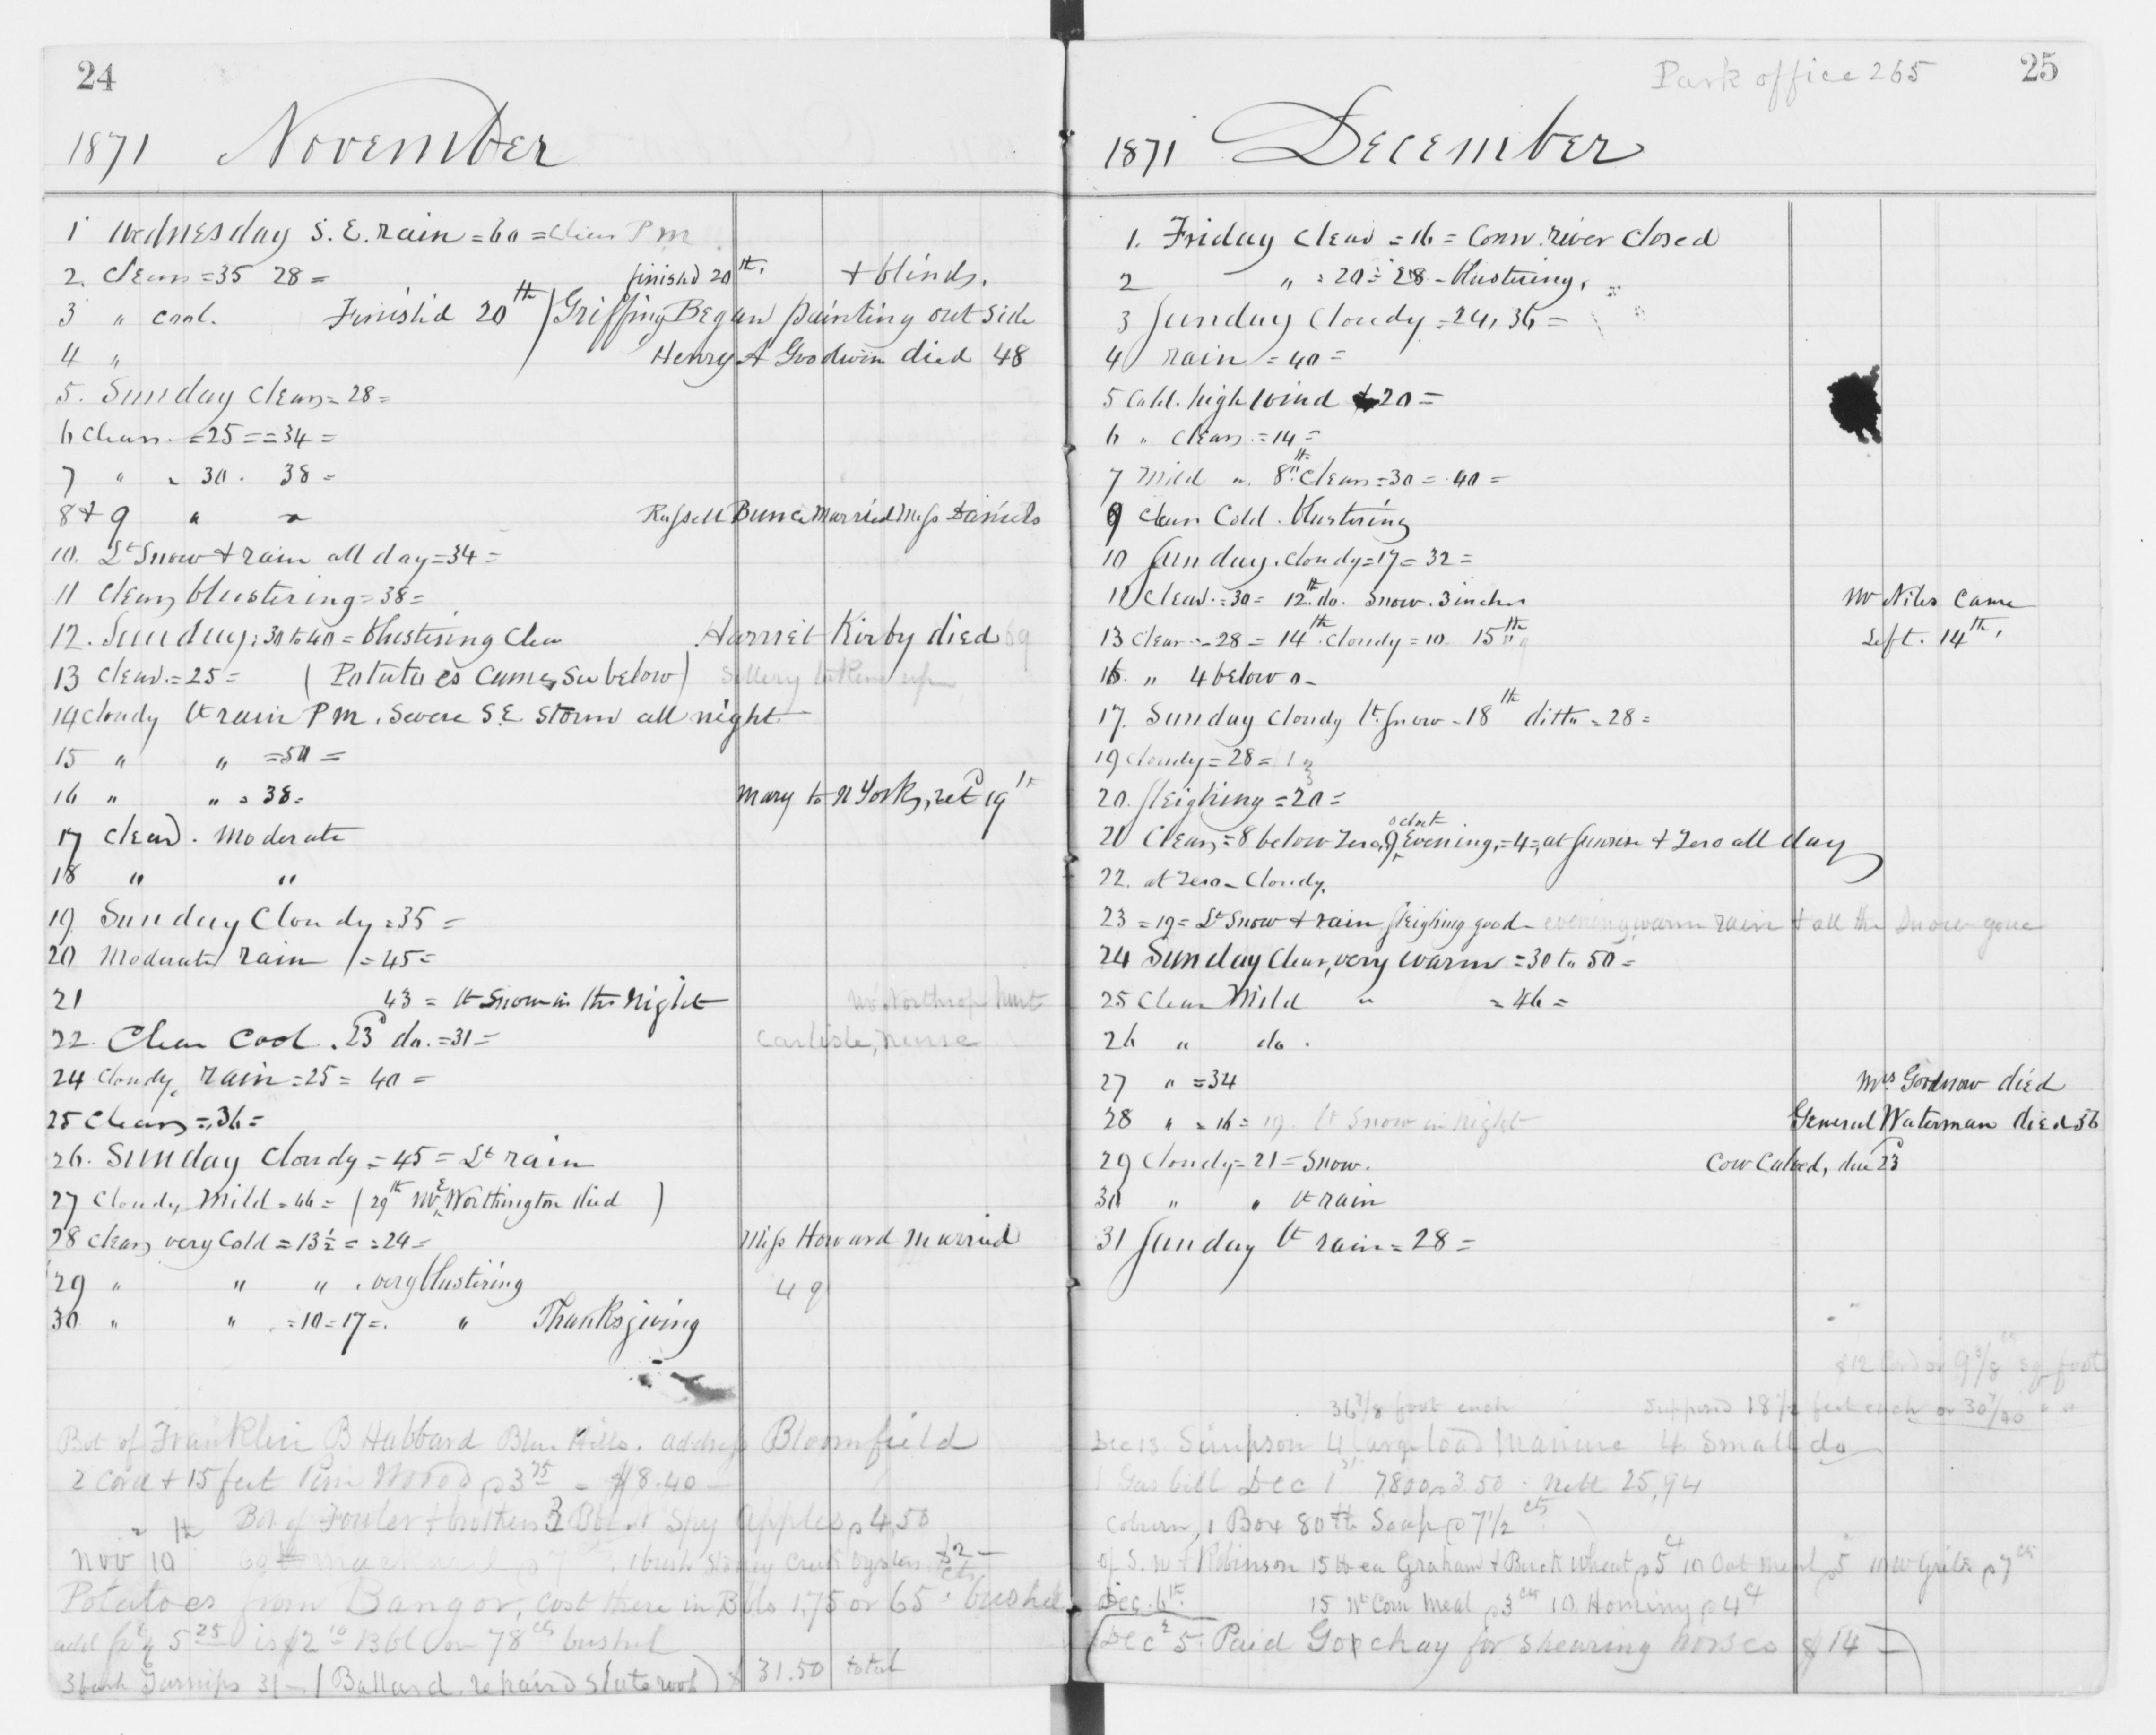 24
1871 November
1 Wednesday S.E. rain = 60 = Clear P m
2. Clear = 35 28 = finished 20th. + blinds.
3 " cool. Finish'd 20th / Griffing Began painting out side
4 " Henry A Goodwin died 48
5. Sunday Clear = 28 =
6 Clear. = 25 = = 34 =
7 " = 30. 38 =
8 + 9 " " Russell Bunce Married Miss Daniels
10. Lt Snow + rain all day = 34 =
11 Clear blustering = 38 =
12. Sunday = 30 to 40 = blustering Clear Harriet Kirby died 69
13 Clear. = 25 = ( Potatoes Came, See below ) Sellery taken up
14 cloudy lt rain P m. Severe S.E Storm all night
15 " " = 50 =
16 " " = 38 = Mary to N York, ret 19th
17 Clear. Moderate
18 " "
19 Sunday Cloudy = 35 =
20 Moderate rain = 45 =
21 43 = lt Snow in the Night Mr Northrop hurt
22. Clear Cool. 23d do. = 31 = Carlisle, Nurse
24 Cloudy, rain = 25 = 40 =
25 Clear = 36 =
26. Sunday Cloudy = 45 = Lt rain
27 Cloudy, Mild = 46 = ( 29th Mr E Worthington died )
28 Clear, very Cold = 13 1/2 = = 24 = Miss Howard Married
29 " " " . very blustering 49
30 " " = 10 = 17 =. " Thanksgiving
Bot of Franklin B Hubbard Blue Hills. address Bloomfield
2 Cord + 15 feet Pine Wood @ 3 75 = $8.40
" Bot of Fowler + brothers 3 Bbl N Spy Apples @ 4,50
Nov 10 60 lb Mackarel @ 7 cts. 1 bush Stoney Creek Oysters $2 -
Potatoes from Bangor, cost there in Bbls 1,75 or 65 cts bushel
add 5 25 is $2 10 Bbl or 78 cts bushel
3 bush Turnips 31 - ( Ballard repaired slate roof ) $ 31.50 total
Park office 265 25
1871 December
1. Friday Clear = 16 = Conn. river Closed
2 " = 20 = 28 - blustering,
3 Sunday Cloudy = 24, 36 =
4 rain = 40 =
5 Cold. high wind 20 =
6 " Clear = 14 =
7 Mild " 8th Clear = 30 = 40 =
9 Clear Cold. blustering
10 Sunday. Cloudy = 17 = 32 =
11 Clear. = 30 = 12th do. Snow. 3 inches Mr Niles Came
13 Clear - 28 = 14th. Cloudy = 10 15th " 9 Left. 14th.
16. " 4 below 0 -
17. Sunday Cloudy lt. Snow - 18th ditto = 28 =
19 Cloudy = 28 =
20. Sleighing = 20 =
21 Clear = 8 below Zero, 9 oclock Evening, = 4 =, at Sunrise + Zero all day
22. at Zero - Cloudy.
23 = 19 = Lt Snow + rain Sleighing good - evening warm rain + all the Snow gone
24 Sunday Clear, very warm = 30 to 50 =
25 Clear Mild " = 46 =
26 " do.
27 " = 34 Mrs Goodnow died
28 " = 16 = 19. lt Snow in Night General Waterman died 56
29 Cloudy = 21 = Snow. Cow Calved, due 23d
30 " " lt rain
31 Sunday lt rain = 28 =
$12 Cord or 9 3/8 cts sq foot
36 7/8 foot each Supposed 18 1/2 feet each or 30 7/40 " "
Dec 13 Simpson 4 large load Manure 4 Small do
1 Gas bill Dec 1st 7,800 @ 3.50 - Nett 25,94
Coburn, 1 Box 80 lb Soap @ 7 1/2 cts
of S. W + Robinson 15 lb ea Graham + Buck Wheat @ 5 ct 10 Oat Meal @ 5 10 W Grits @ 7 cts
Dec. 6th. 15 lb Corn Meal @ 3 cts 10 Hominy @ 4 ct
Dec 5. Paid for shearing horses $14 -